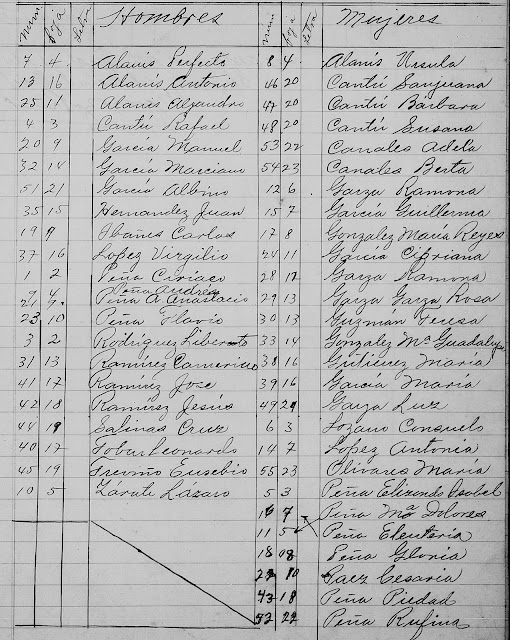 Num Foja Letra Hombres Num Foja Letra Mujeres
7 4. Alanís Perfecto 8 4. Alanís Ursula
13 16 Alanís Antonio 46 20 Cantú Sanjuana
25 11 Alanís Alejandro 47 20 Cantú Bárbara
4 3 Cantú Rafael 48 20 Cantú Susana
20 9 García Manuel 53 22 Canales Adela
32 14 García Marciano 54 23 Canales Berta
51 21 García Albino 12 6 Garza Ramona
35 15 Hernandez Juan 15 7 García Guillerma
19 9 Ibañes Carlos 17 8 Gonzalez María Reyes
37 16 Lopez Virgilio 24 11 García Cipriana
1 2 Peña Ciriaco 28 12 Garza Ramona
9 4 Peña Andrea
21 9. Peña A. Anastacio 29 13 Garza Garza Rosa
23 10 Peña Flavio 30 13 Guzmán Teresa
3 2 Rodríguez Liberato 33 14 Gonzalez Mª Guadalupe
31 13 Ramírez Camerino 38 16 Gutierrez María
41 17 Ramírez Jose 39 16 García María
42 18 Ramírez Jesús 49 21 Garza Luz
44 19 Salinas Cruz 6 3 Lozano Consuelo
40 17 Tobar Leonardo 14 7 Lopez Antonia
45 19 Treviño Eusebio 55 23 Olivares María
10 5 Zárate Lázaro 5 3 Peña Elizondo Isabel
16 7 Peña Mª Dolores
11 5 Peña Eleuteria
18 08 Peña Gloria
22 10 Paez Cesaria
43 18 Peña Piedad
52 22 Peña Rufina